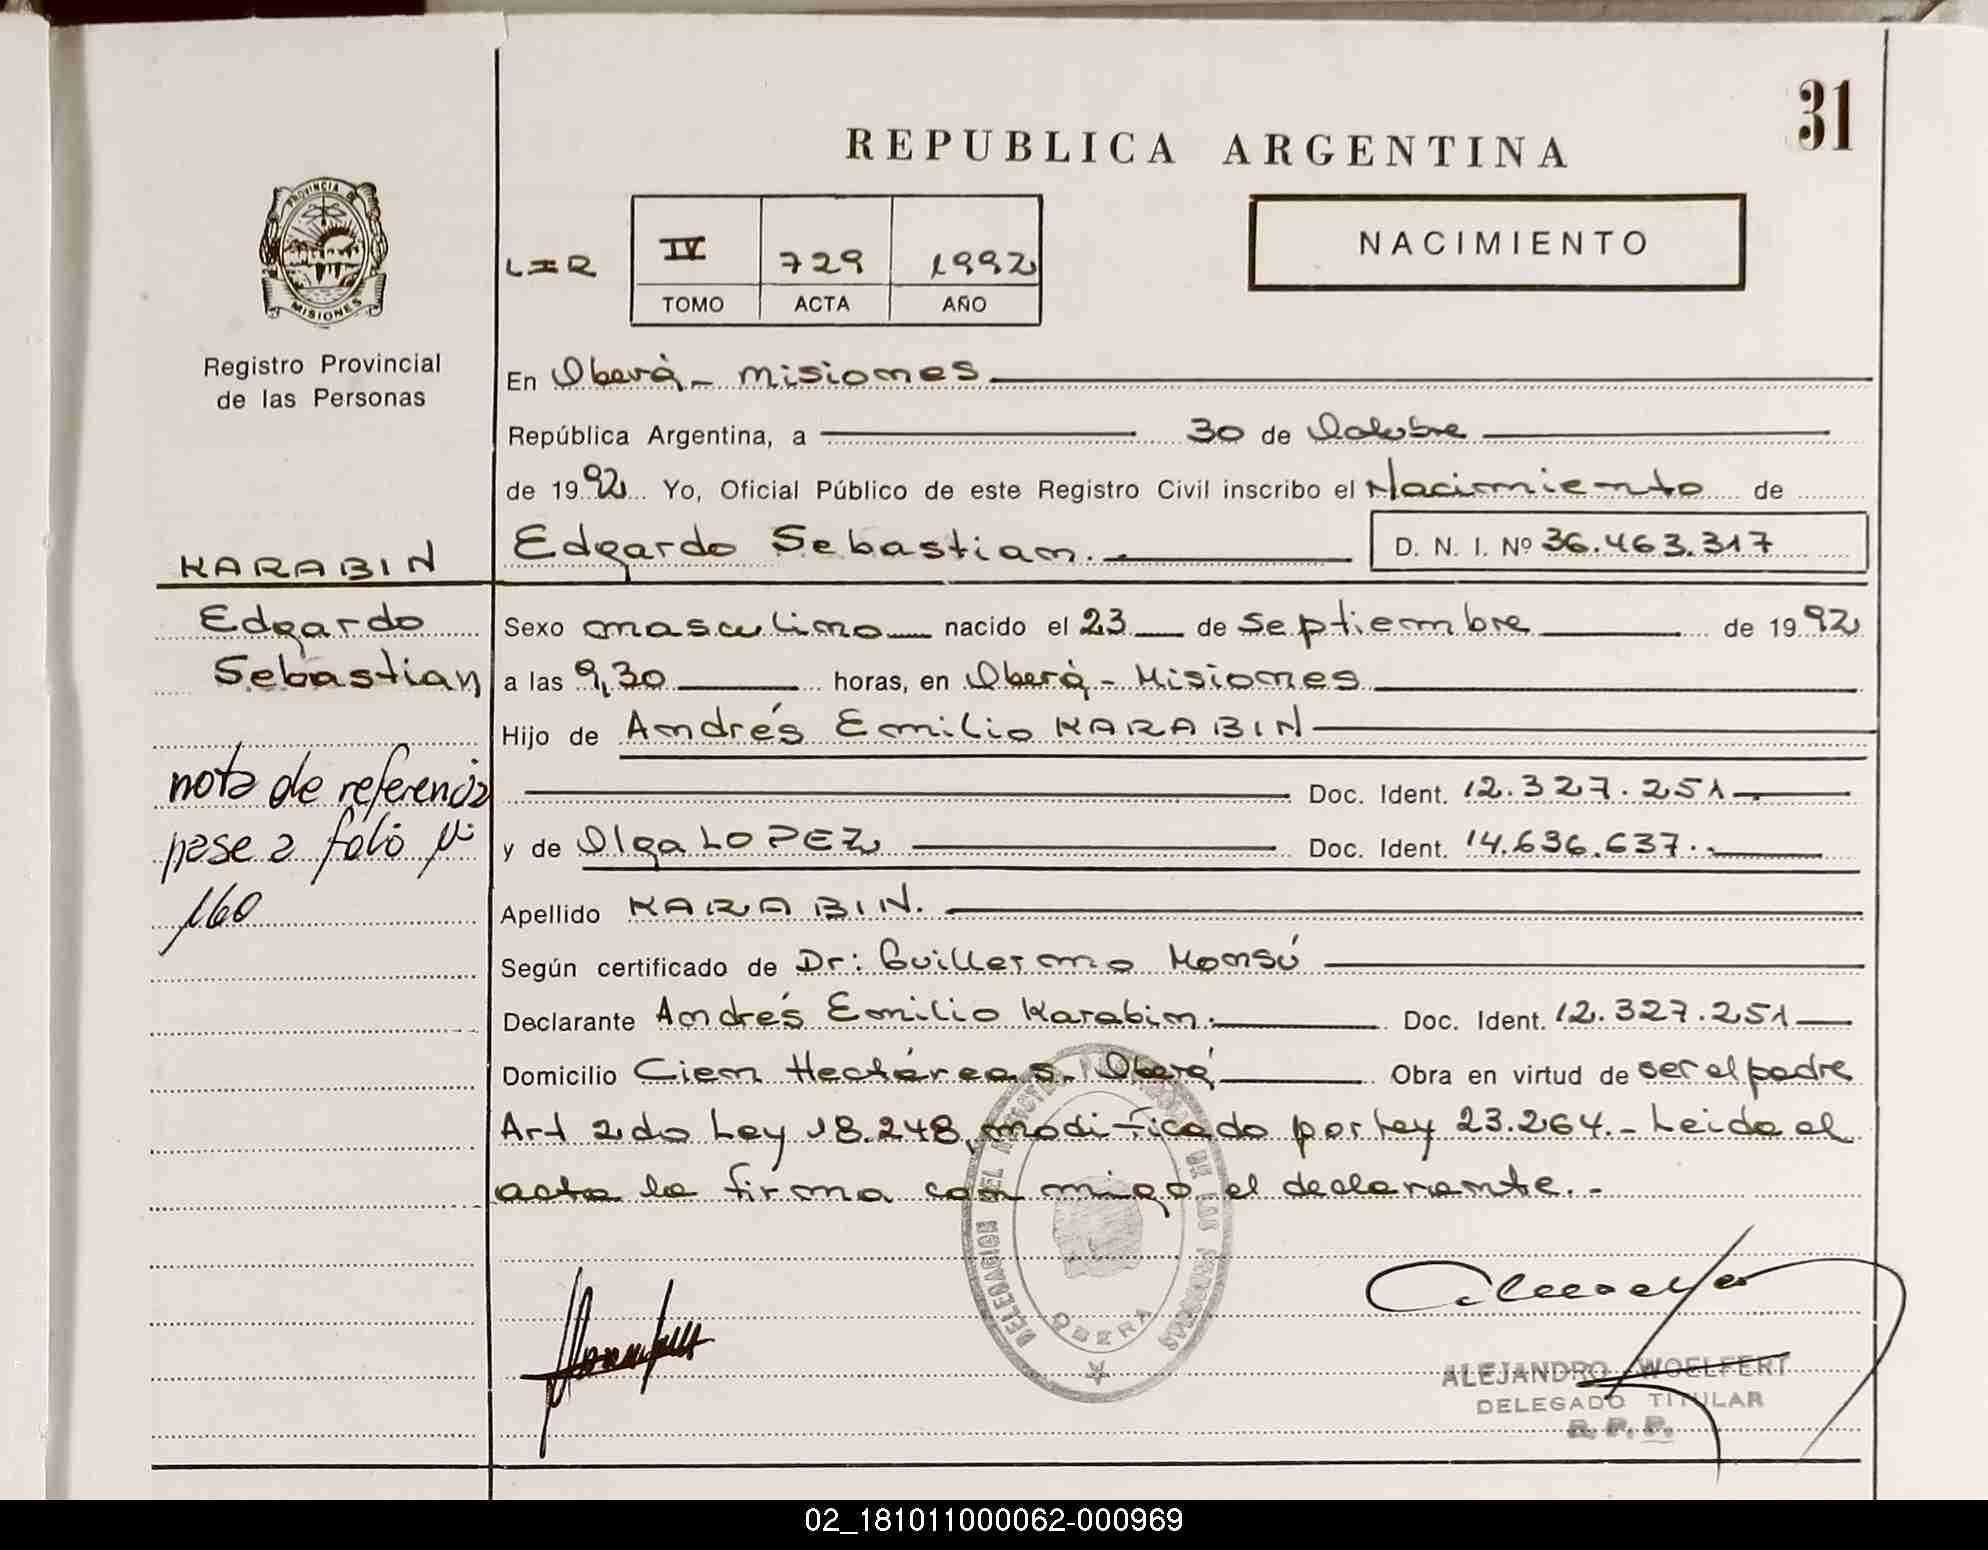 31
REPUBLICA ARGENTINA
PROVINCIA DE
MISIONES
Registro Provincial
de las Personas
IV 729 1992
TOMO ACTA AÑO
NACIMIENTO
En Oberá - Misiones
República Argentina, a 30 de Octubre
de 1992 Yo, Oficial Público de este Registro Civil inscribo el Nacimiento de
Edgardo Sebastian. D. N. I. Nº 36.463.317
KARABIN
Edgardo
Sebastian
nota de referencia
pase a folio Nº
160
Sexo masculino nacido el 23 de Septiembre de 1992
a las 9,30 horas, en Oberá - Misiones
Hijo de Andrés Emilio KARABIN
Doc. Ident. 12.327.251
y de Olga LOPEZ Doc. Ident. 14.636.637.-
Apellido KARABIN.
Según certificado de Dr: Guillermo Monsú
Declarante Andrés Emilio Karabin. Doc. Ident. 12.327.251
Domicilio Cien Hectáreas. Oberá Obra en virtud de ser el padre
Art 2do Ley 18.248, modificado por Ley 23.264.- Leida el
acta la firma con migo el declarante.-
DELEGACION DEL REGISTRO PROVINCIAL DE LAS PERSONAS
OBERA
ALEJANDRO WOELFERT
DELEGADO TITULAR
R. P. P.
02_181011000062-000969